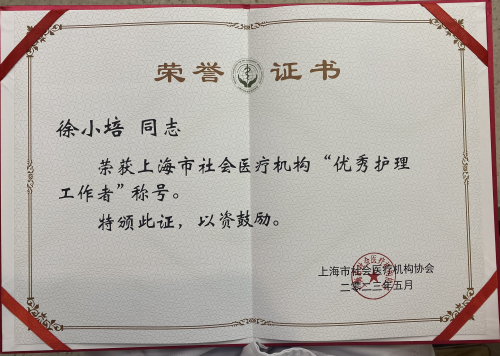 荣誉证书
徐小培 同志
荣获上海市社会医疗机构“优秀护理
工作者”称号。
特颁此证，以资鼓励。
上海市社会医疗机构协会
二零二三年五月